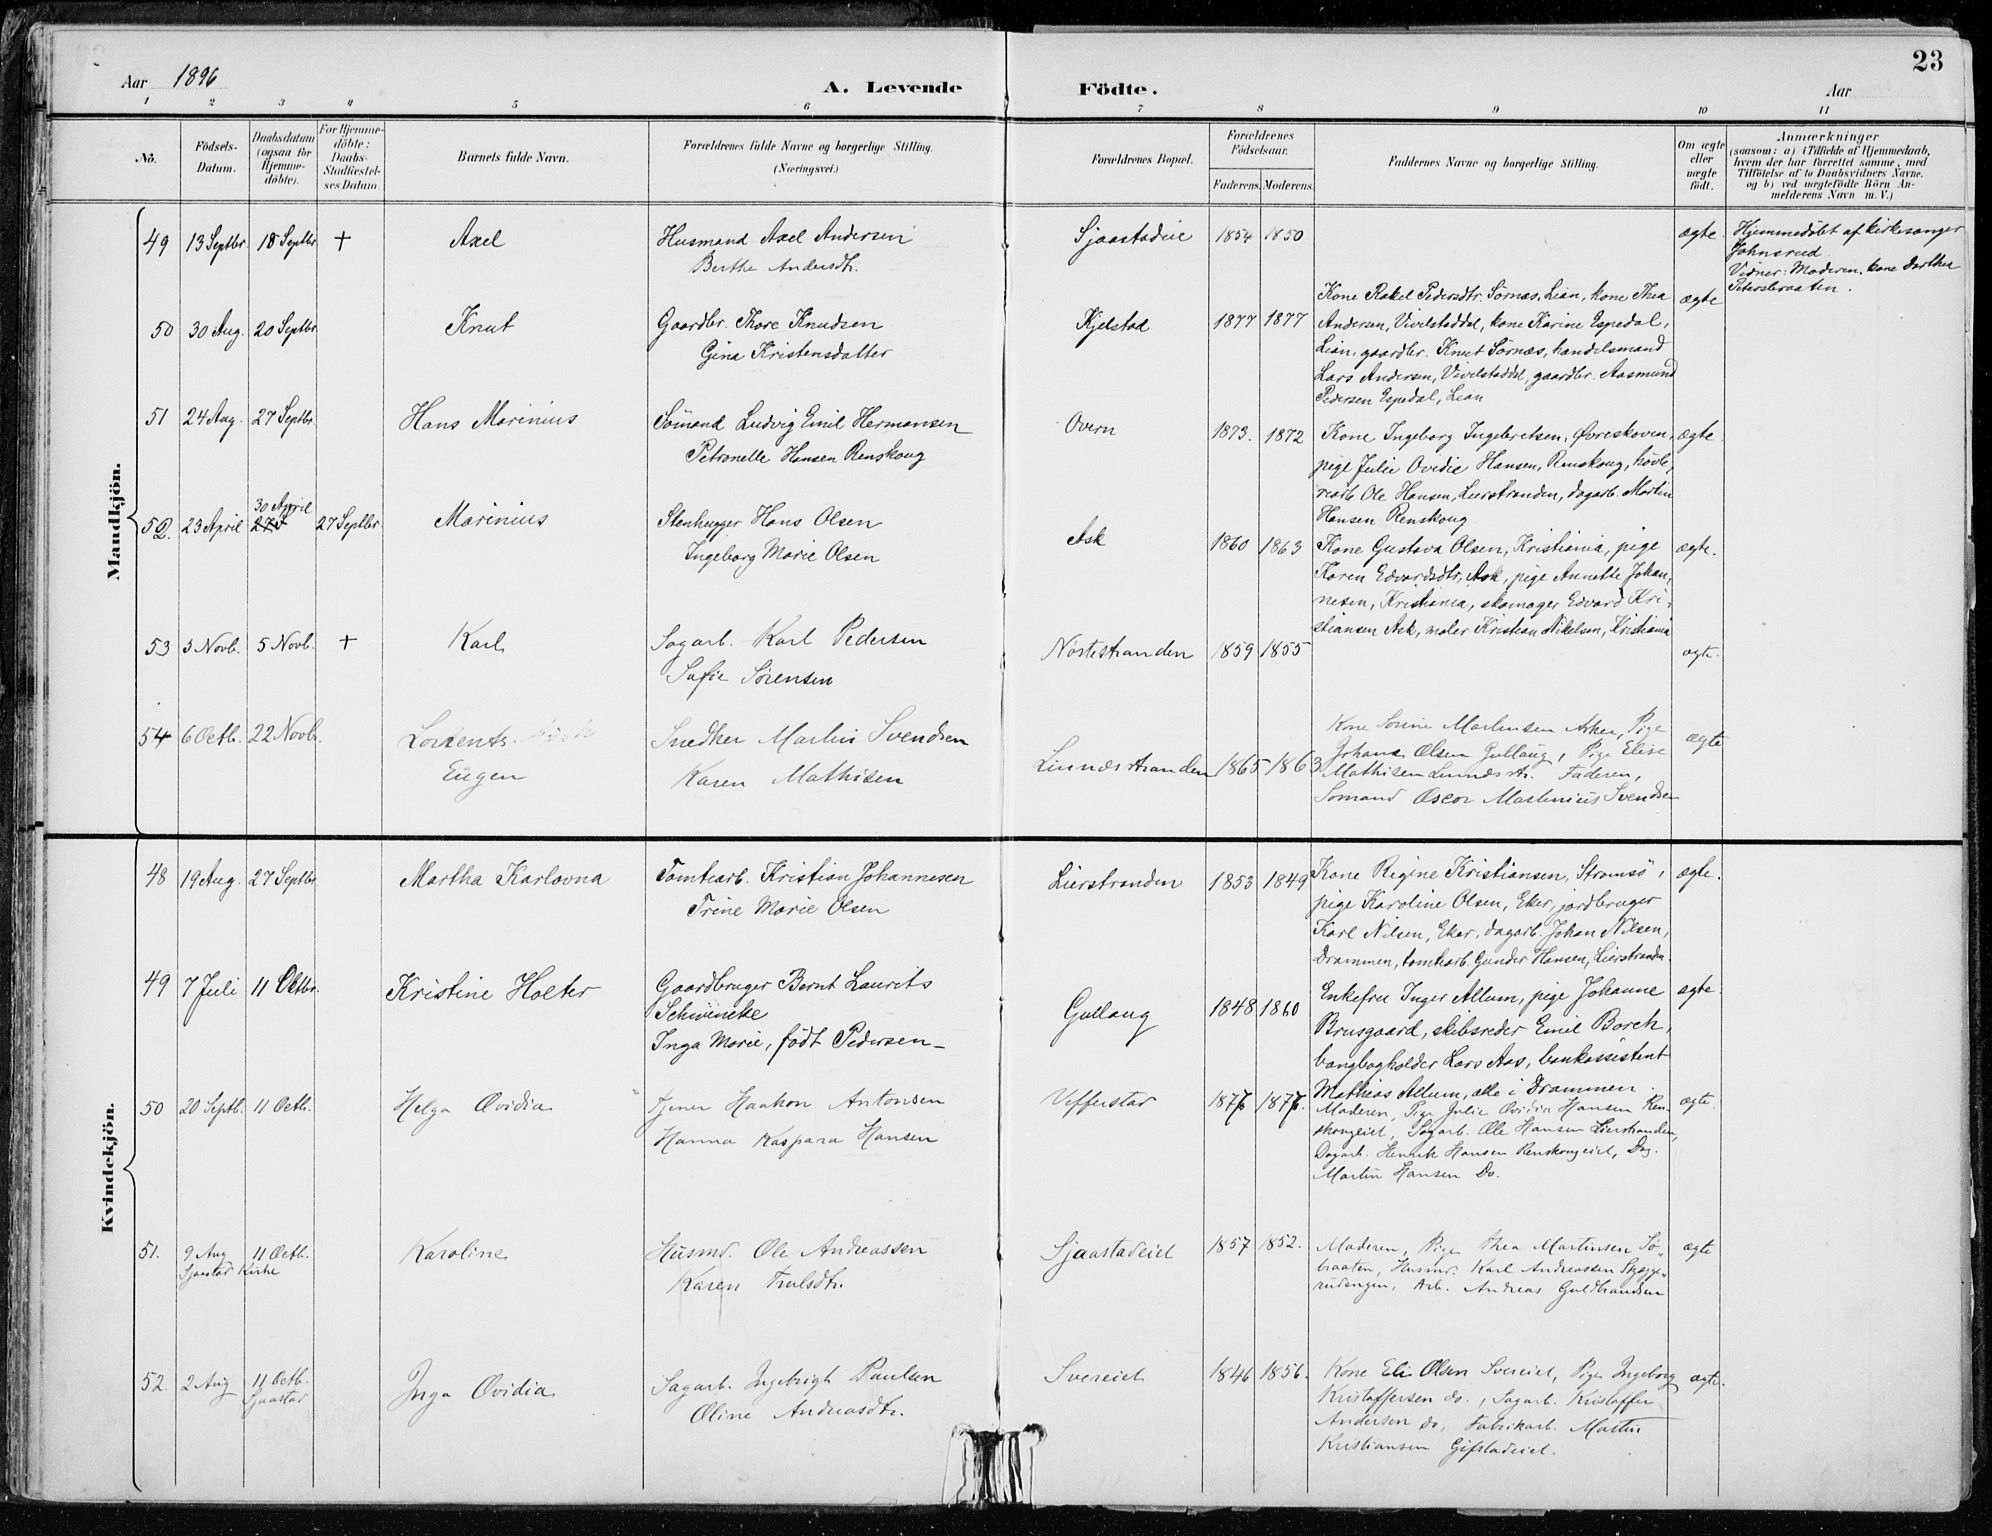 23
Aar 1896
A. Levende Födte.
Aar
1 2 3 4 5 6 7 8 9 10 11
No.
Födsels-Datum.
Daabsdatum (ogsaa for Hjemme-döbte).
For Hjemme-döbte: Daabs-Stadfæstel-ses Datum.
Barnets fulde Navn.
Forældrenes fulde Navne og borgerlige Stilling. (Næringsvei.)
Forældrenes Bopæl.
Forældrenes Födselsaar.
Faderens. Moderens.
Faddernes Navne og borgerlige Stilling.
Om ægte eller uægte födt.
Anmærkninger
(saasom: a) i Tilfælde af Hjemmedaab,
hvem der har forrettet samme, med
Tilföielse af to Daabsvidners Navne.
og b) ved uægtefödte Börn An-
melderens Navn m. V.)
Mandkjön.
49 13 Septbr. 18 Septbr. + Axel
Husmand Axel Andersen
Berthe Andersdtr.
Sjaastadeie 1854 1850 ægte.
Hjemmedöbt af kirkesanger
Johnsrud.
Vidner: Moderen, kone Dorthea
Petersbraaten.
50 30 Aug. 20 Septbr. Knut
Gaardbr. Thore Knudsen
Gina Kristensdatter
Kjelstad 1877 1877
Kone Rakel Pedersdtr. Sörnæs, Lian, kone Thea
Andersen, Vivelstaddal, kone Karine Espedal,
Lian, gaardbr. Knut Sörnæs, handelsmand
Lars Andersen, Vivelstaddal, gaardbr. Aasmund
Pedersen Espedal, Lian
ægte
51 24 Aug. 27 Septbr. Hans Marinius
Sömand Ludvig Emil Hermansen
Petronelle Hansen Renskoug
Overn 1873. 1872
Kone Ingeborg Ingebretsen, Øvreskoven,
pige Julie Ovidie Hansen, Renskoug, hövle,
riarb. Ole Hansen, Lierstranden, dagarb. Martin
Hansen Renskoug.
ægte.
52. 23 April 30 April 27 Septbr. Marinius
Stenhugger Hans Olsen
Ingeborg Marie Olsen
Ask 1860 1863
Kone Gustava Olsen, Kristiania, pige
Karen Edvardsdtr, Ask, pige Annette Johan,
nesen, Kristiania, skomager Edvard Kri,
stiansen Ask, maler Kristian Mikelsen, Kristiania
ægte.
53 3 Novb. 5 Novb. + Karl
Sagarb. Karl Pedersen
Sofie Sörensen
Nöstestranden 1859 1855 ægte.
54 6 Octb. 22 Novb. Lorents
Eugen
Snedker Martin Svendsen
Karen Mathisen
Linnæsstranden 1865 1863
Kone Sorine Martinsen Asker, Pige
Johane Olsen Gullaug, Pige Elise
Mathisen Linnæsstr. Faderen,
Somand Oscar Martinius Svendsen
ægte
Kvindekjön.
48 19 Aug. 27 Septbr Martha Karlovna
Tomtearb. Kristian Johannesen
Trine Marie Olsen
Lierstranden 1853 1849
Kone Regine Kristiansen, Stromsö,
pige Karoline Olsen, Eker, jordbruger
Karl Nilsen, Eker, dagarb. Johan Nilsen,
Drammen, tomtearb. Gunder Hansen, Lierstranden.
ægte.
49 7 Juli 11 Oktbr. Kristine Holter
Gaardbruger Bernt Laurits
Schwencke
Inga Marie, födt Pedersen
Gullaug 1848 1860
Enkefru Inger Allum, pige Johanne
Brusgaard, skibsreder Emil Borch,
bangbogholder Lars Aas, bankassistent
Mathias Allum, alle i Drammen.
ægte.
50 20 Septb. 11 Octb. Helga Ovidia
Tjener Haakon Antonsen
Hanna Kaspara Hansen
Vefferstad
Moderen, Pige Julie Ovidia Hansen Ren-
skougeiet, Sagarb. Ole Hansen Lierstranden,
Dagarb. Henrik Hansen Renskougeiet, Dag.
Martin Hansen Do.
ægte.
51. 9 Aug 11 Octb. Karoline
Sjaastad Kirke
Husmd. Ole Andreassen
Karen Trulsdtr.
Sjaastadeiet 1857 1852.
Moderen, Pige Thea Martinsen Sö"
braaten, Husmd. Karl Andreassen Stygge"
rudengen, Arb. Andreas Guldbrandsen
ægte
52. 2 Aug 11 Octb. Inga Ovidia
Sjaastad
Sagarb. Ingebrigt Paulsen
Oline Andreasdtr.
Svereiet 1846 1856.
Kone Eli Olsen Svereiet, Pige Ingeborg
Kristoffersen do., Sagarb. Kristoffer
Andersen do, Fabrikarb. Martin
Kristiansen Gifstadeiet.
ægte.